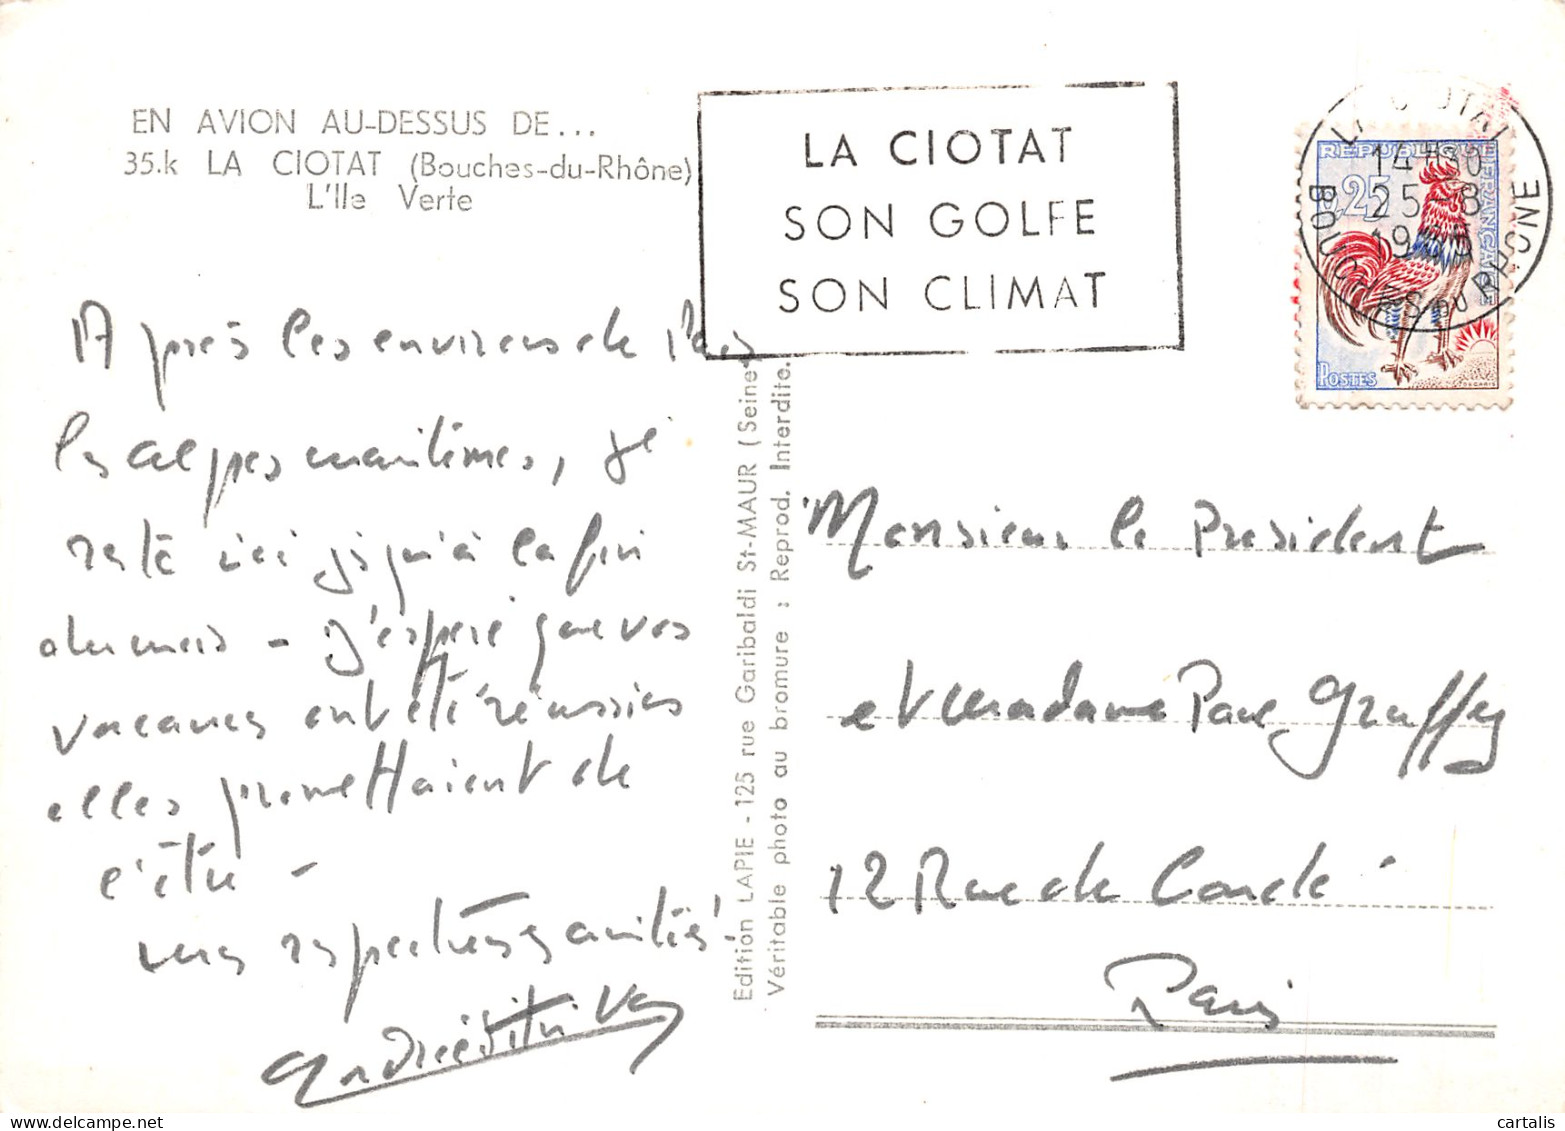 EN AVION AU-DESSUS DE...
35.k LA CIOTAT (Bouches-du-Rhône)
L'Ile Verte
LA CIOTAT
SON GOLFE
SON CLIMAT
LA CIOTAT
14H30
25-8
1965
BOUCHES DU RHONE
REPUBLIQUE FRANÇAISE
0,25
POSTES
Après les environs de Paris
les alpes maritimes, je
reste ici jusqu'à la fin
du mois - J'espère que vos
vacances ont été réussies
elles promettaient de
l'être -
mes respectueuses amitiés.
Edition LAPIE - 125 rue Garibaldi St-MAUR (Seine)
Véritable photo au bromure : Reprod. Interdite.
Monsieur le President
et Madame Graffey
12 Rue de Condé
Paris
cartalis